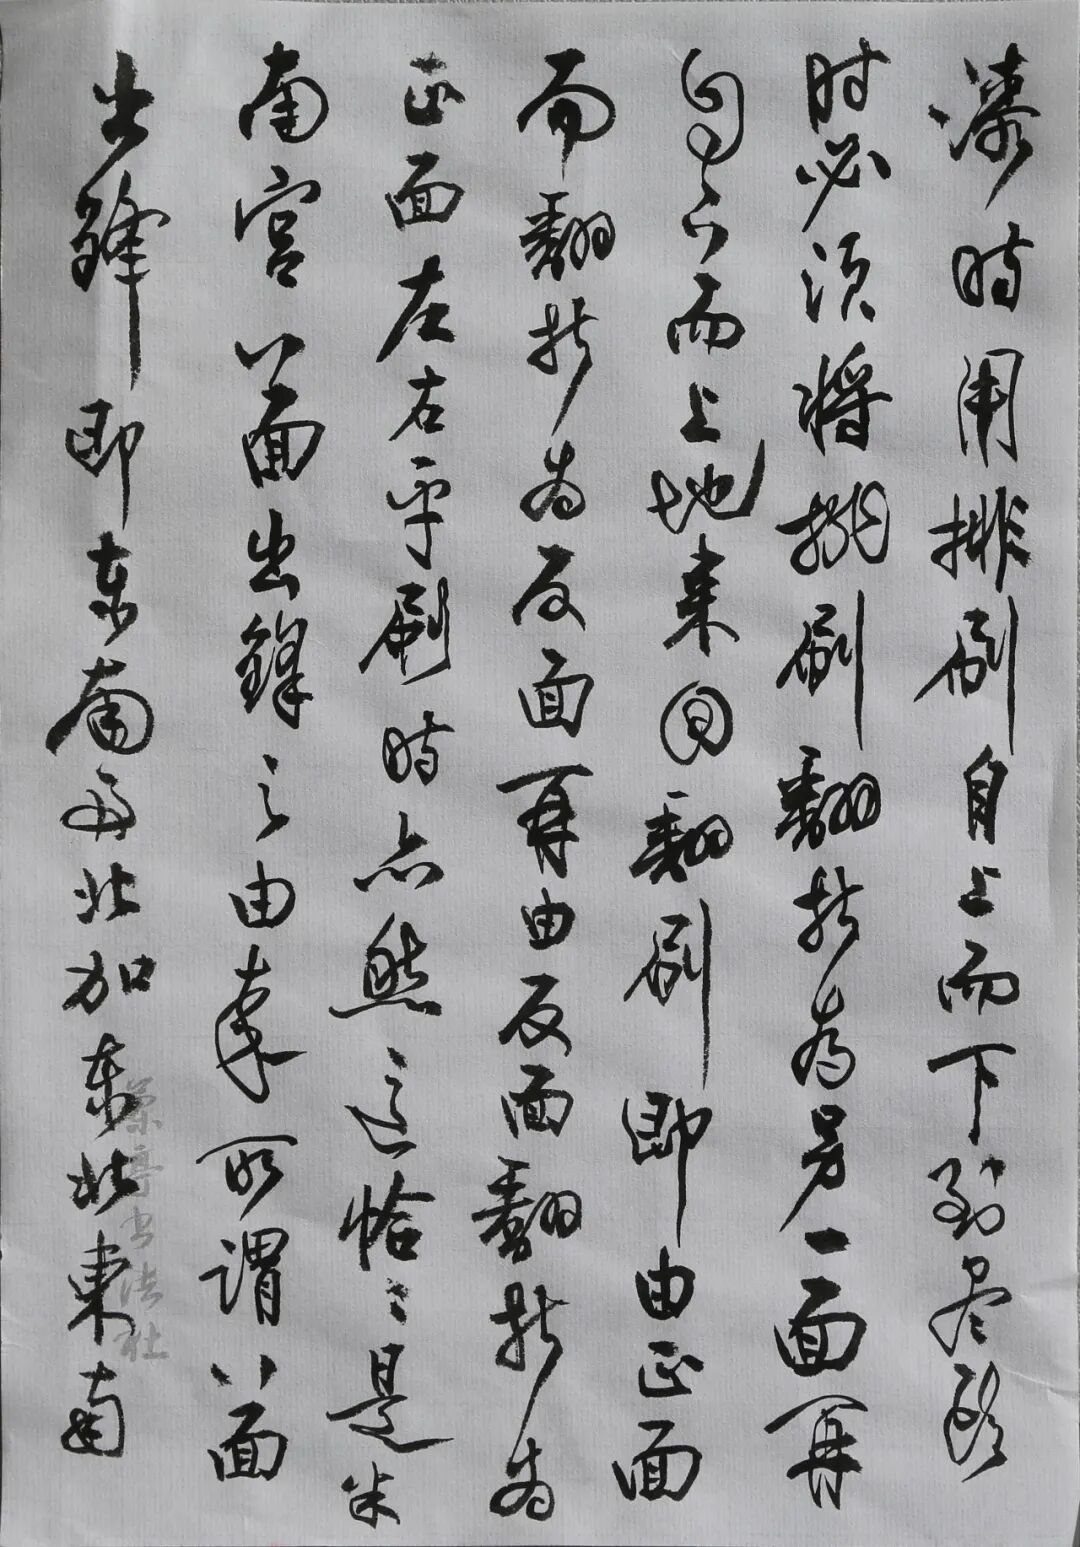 漆时用排刷自上而下到尽头
时必须将排刷翻折为另一面再
自下而上地来回翻刷即由正面
而翻折为反面再由反面翻折为
正面左右平刷时亦然这恰恰是米
南宫八面出锋之由来所谓八面
出锋即东南西北加东北东南
荣亭书法社